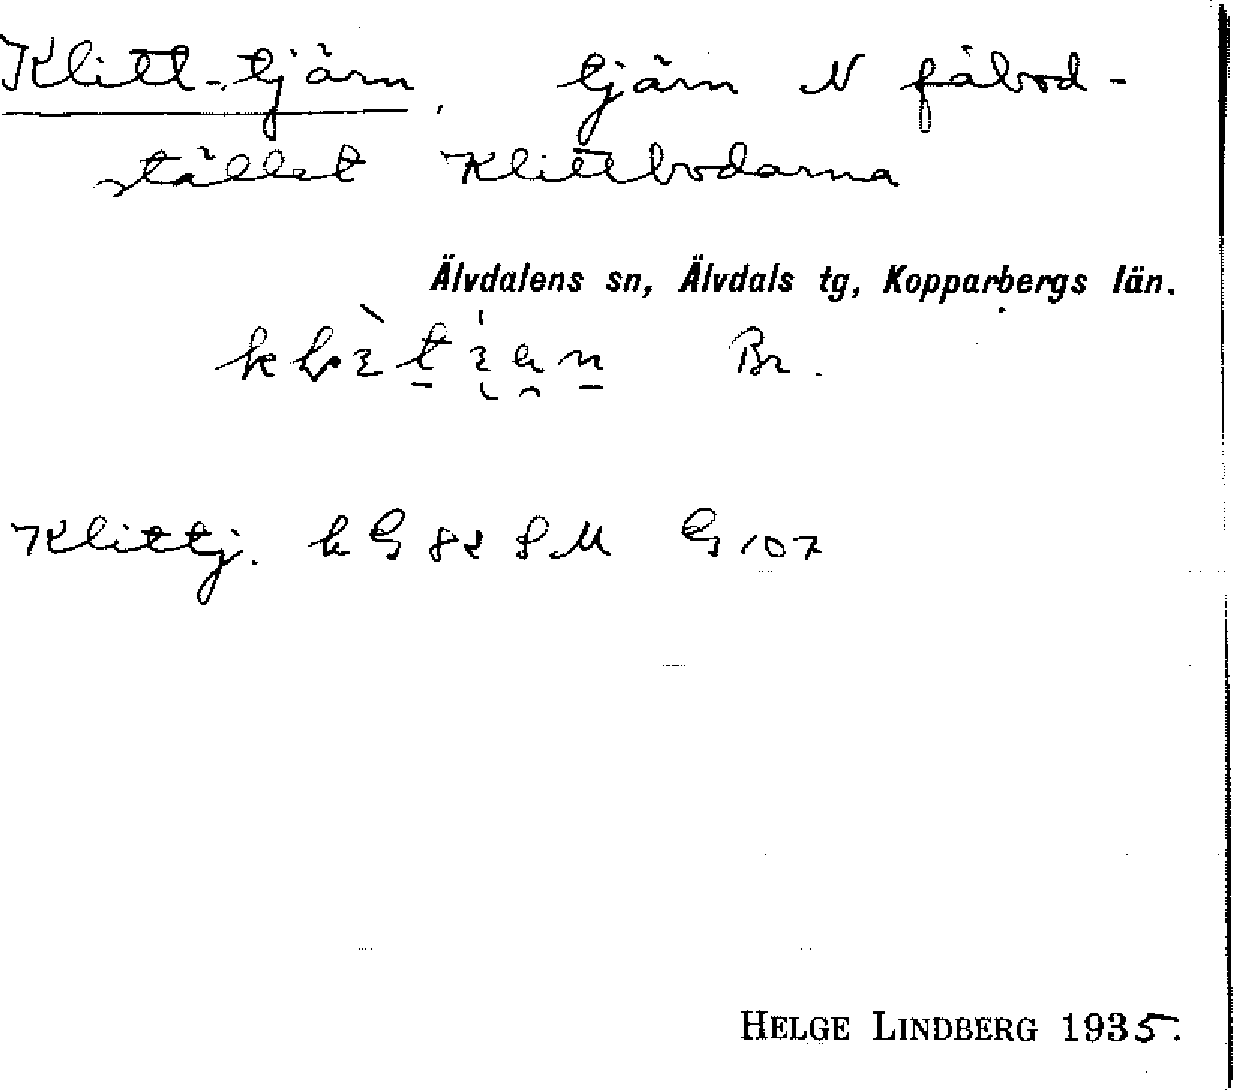 Klitt-tjärn, tjärn N fäbod-
stället Klittbodarna
Älvdalens sn, Älvdals tg, Kopparbergs län.
Br.
Klittj. k G 82 S M G 107
HELGE LINDBERG 1935.